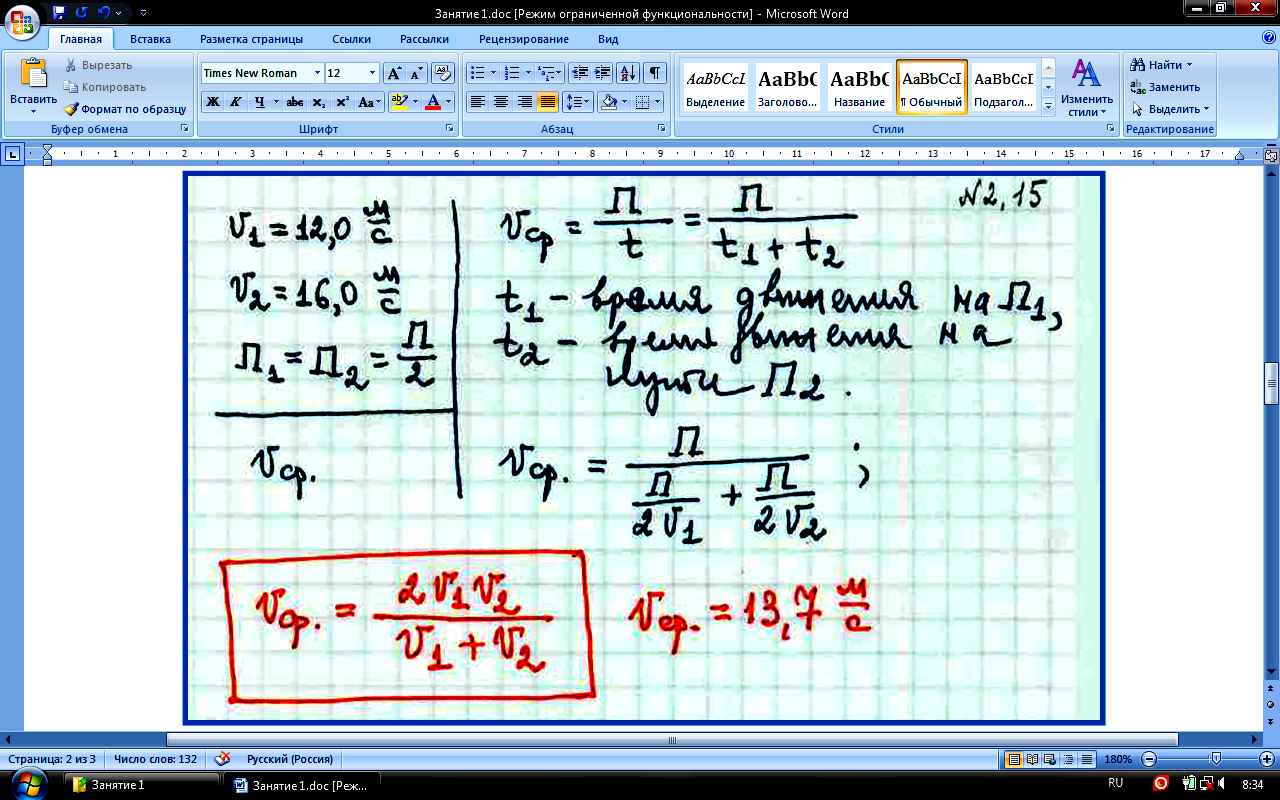 Занятие 1.doc [Режим ограниченной функциональности] - Microsoft Word
Главная Вставка Разметка страницы Ссылки Рассылки Рецензирование Вид
Вставить
Вырезать
Копировать
Формат по образцу
Буфер обмена
Times New Roman 12
Ж К Ч abc x₂ x² Aa
Шрифт
Абзац
AaBbCcI AaBbC AaBbC AaBbCcI AaBbCcI
Выделение Заголово... Название ¶ Обычный Подзагол...
Изменить стили
Стили
Найти
Заменить
Выделить
Редактирование
1 2 3 4 5 6 7 8 9 10 11 12 13 14 15 16 17
N2,15
V1 = 12,0 м/с
V2 = 16,0 м/с
П1 = П2 = П/2
Vср.
Vср = П/t = П/(t1 + t2)
t1 - время движения на П1,
t2 - время движения на
пути П2.
Vср. = П/(П/2V1 + П/2V2) ;
Vср. = 2V1V2/(V1 + V2)
Vср. = 13,7 м/с
Страница: 2 из 3 Число слов: 132 Русский (Россия) 180%
Занятие 1 Занятие 1.doc [Реж... RU 8:34